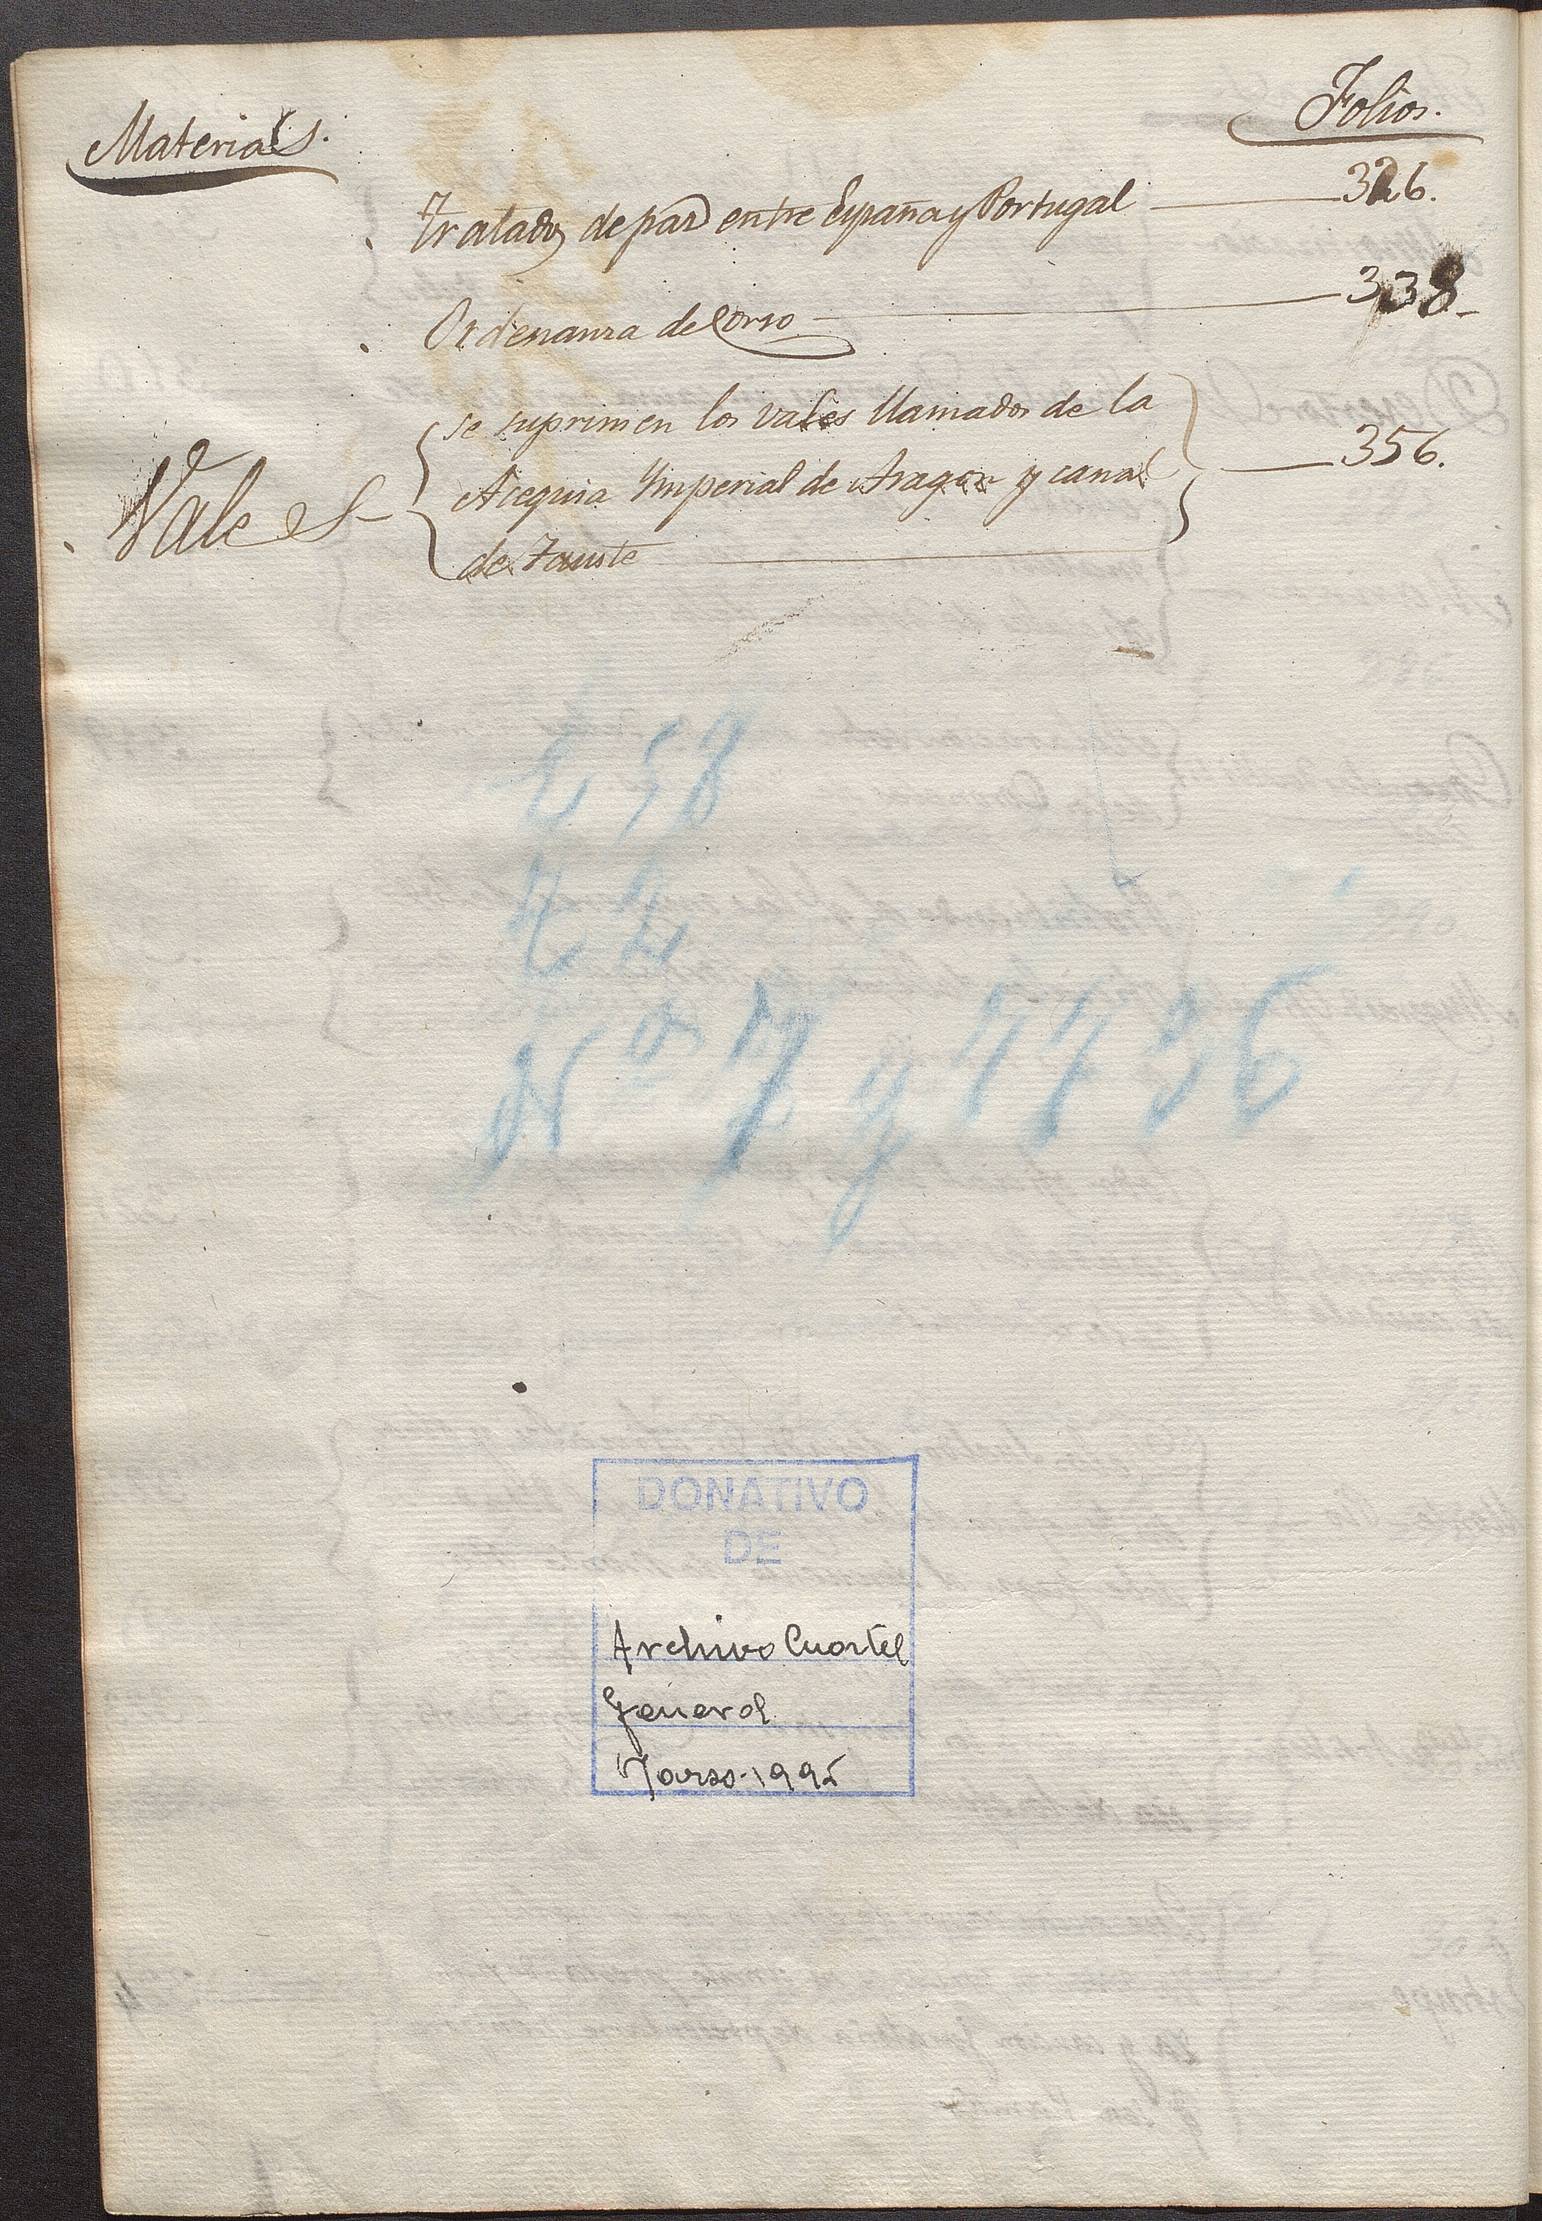 Materias.
Folios.
Tratados de paz entre España y Portugal — 326.
Ordenanza de Corso — 338-
Vales
se suprimen los vales llamados de la
Acequia Ymperial de Aragon y canal — 356.
de Tauste
E 5 8
T 2
Nº 7 y 7736
DONATIVO
DE
Archivo Cuartel
General
Marzo-1995